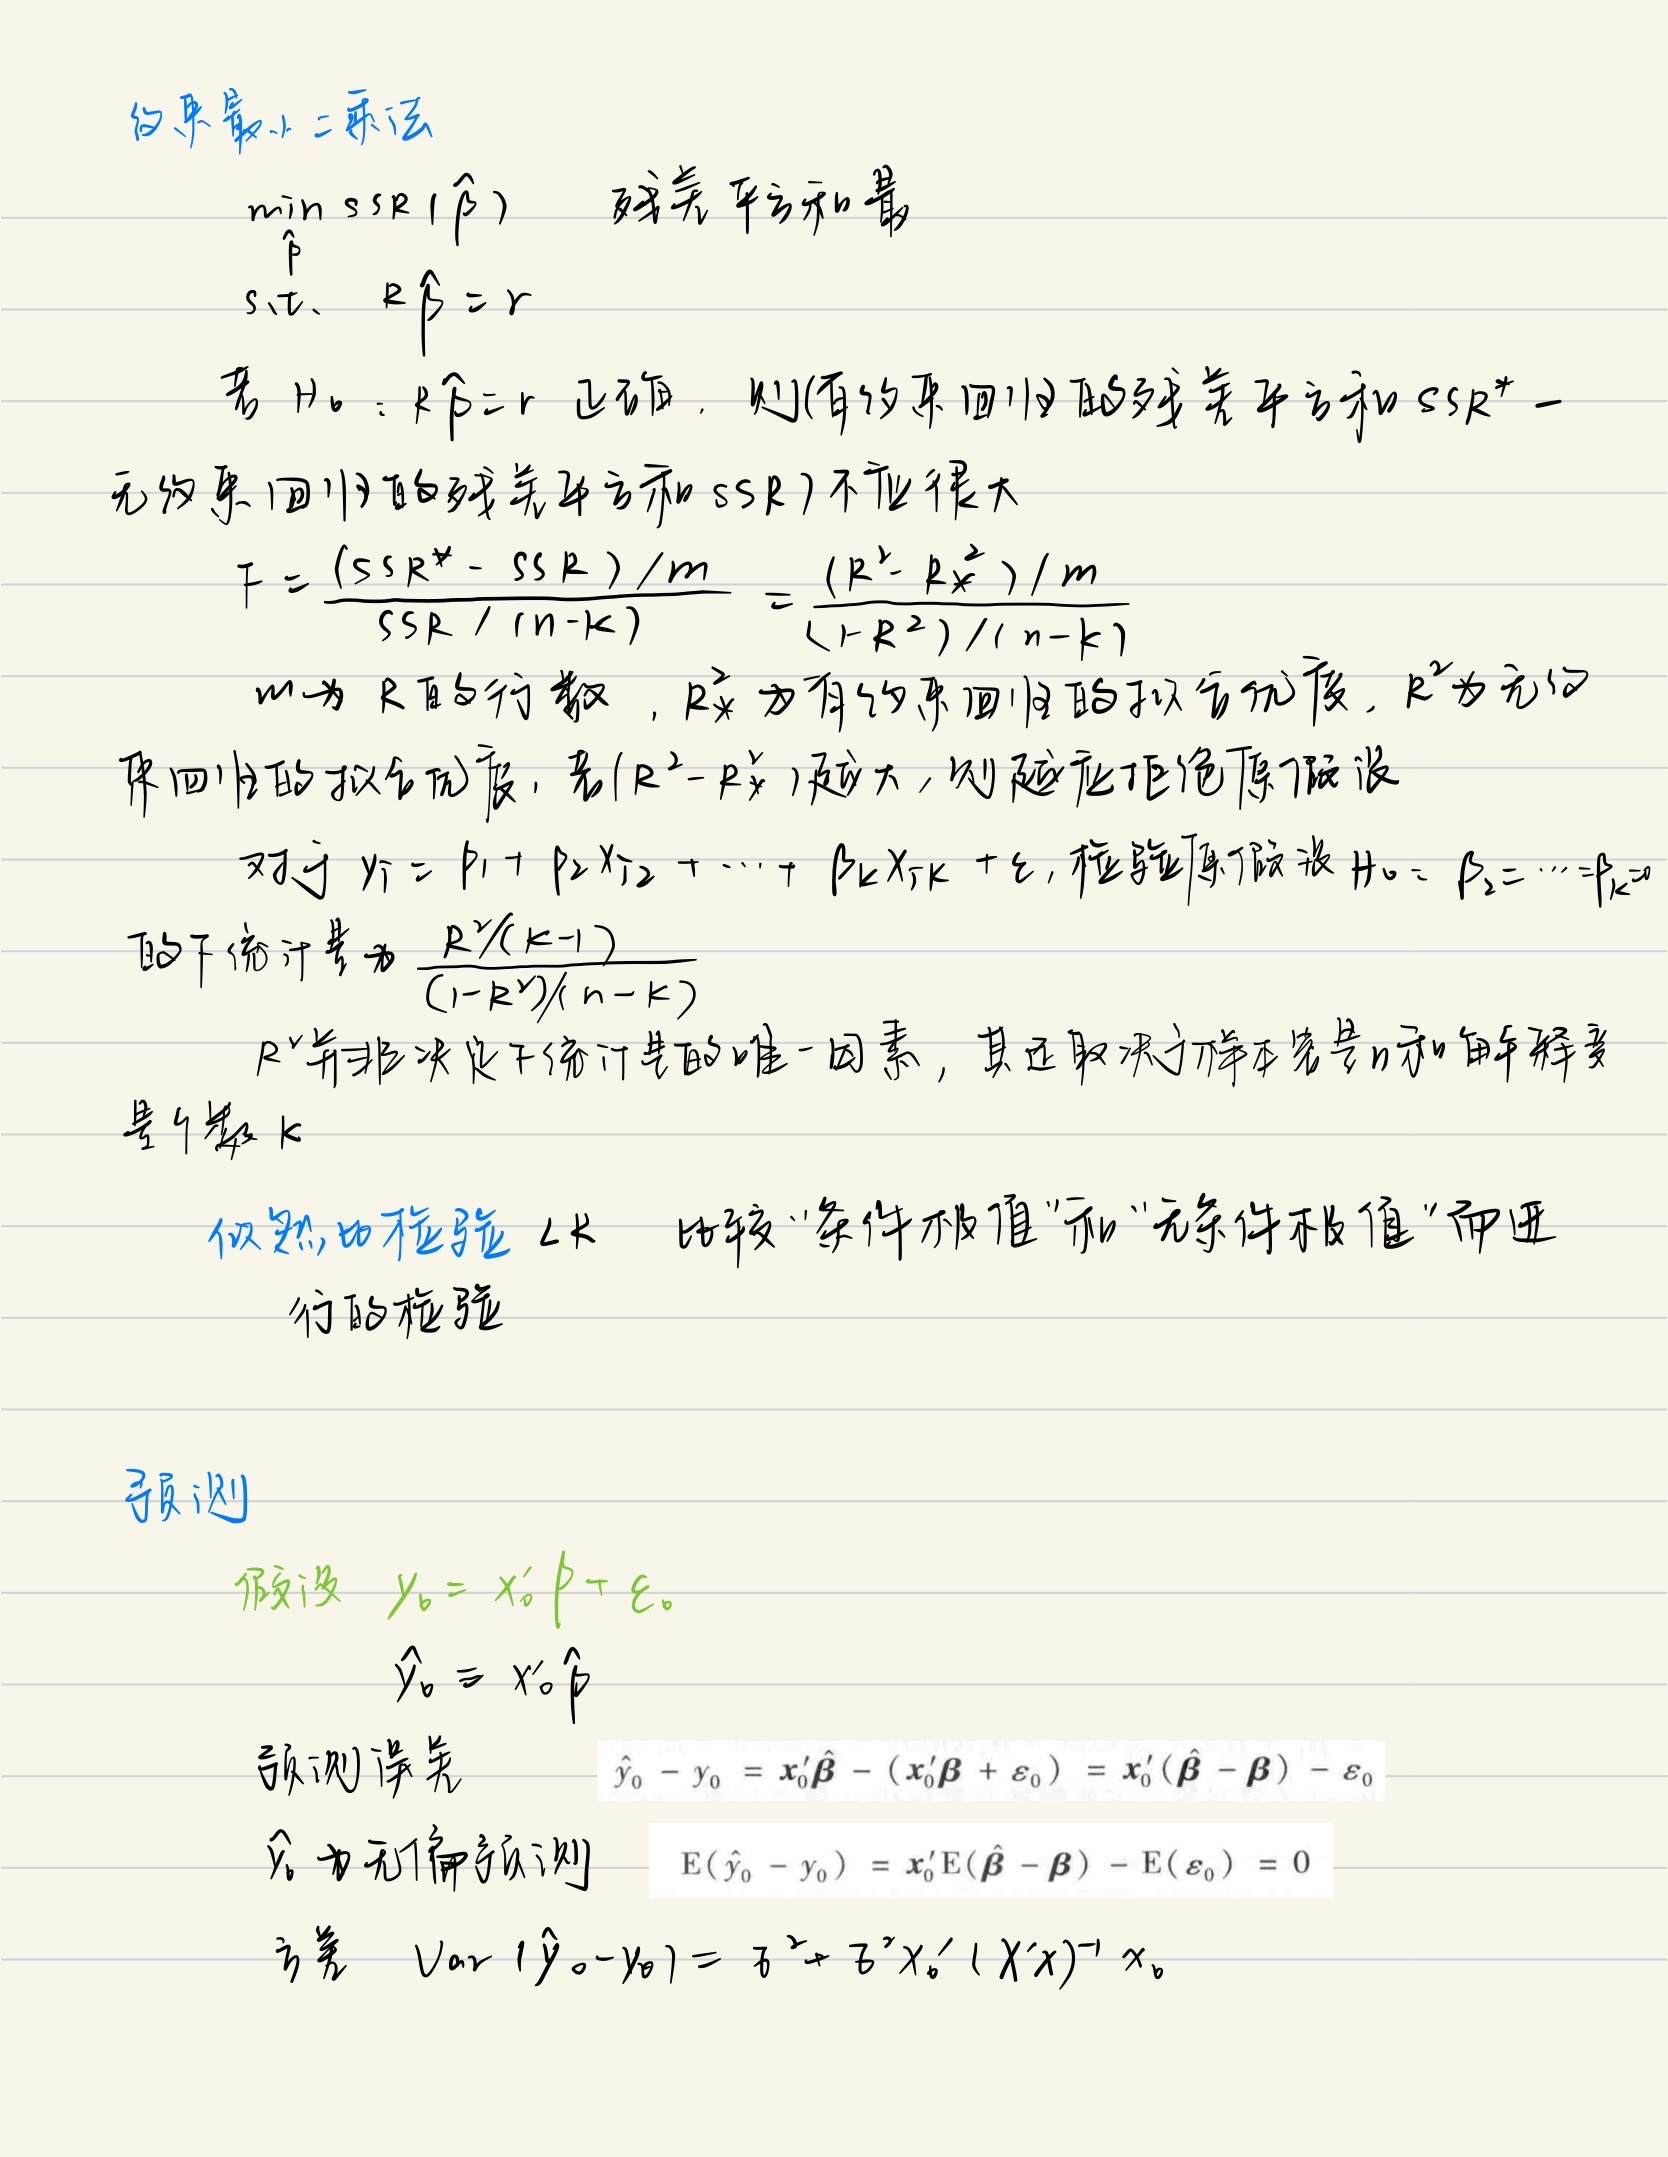 约束最小二乘法
min SSR(β̂) 残差平方和最
β̂
s.t. Rβ̂ = r
若 H₀：Rβ̂ = r 正确，则(有约束回归的残差平方和 SSR* -
无约束回归的残差平方和 SSR)不应很大
F = (SSR* - SSR)/m / SSR/(n-K) = (R² - R*²)/m / (1-R²)/(n-k)
m为 R的行数，R*² 为有约束回归的拟合优度，R²为无约
束回归的拟合优度，若(R² - R*²)越大，则越应拒绝原假设
对于 yᵢ = β₁ + β₂xᵢ₂ + ⋯ + βₖxᵢₖ + ε，检验原假设 H₀： β₂ = ⋯ = βₖ = 0
的F统计量为 R²/(K-1) / (1-R²)/(n-K)
R²并非决定F统计量的唯一因素，其还取决于样本容量n和解释变
量个数 K
似然比检验 LR 比较“条件极值”和“无条件极值”而进
行的检验
预测
假设 y₀ = x₀′β + ε₀
ŷ₀ ≡ x₀′β̂
预测误差 ŷ₀ - y₀ = x₀′β̂ - (x₀′β + ε₀) = x₀′(β̂ - β) - ε₀
ŷ₀ 为无偏预测 E(ŷ₀ - y₀) = x₀′E(β̂ - β) - E(ε₀) = 0
方差 Var(ŷ₀ - y₀) = σ² + σ²x₀′(X′X)⁻¹x₀